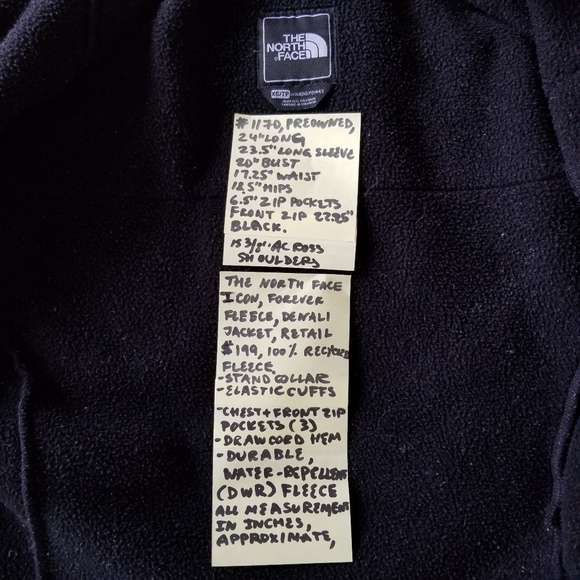 THE
NORTH
FACE
XS/TP WOMENS/FEMMES
#1170, PREOWNED,
24" LONG
23.5" LONG SLEEVE
20" BUST
17.25" WAIST
18.5" HIPS
6.5" ZIP POCKETS
FRONT ZIP 22.25"
BLACK.
15 3/8" ACROSS
SHOULDERS
THE NORTH FACE
ICON, FOREVER
FLEECE, DENALI
JACKET, RETAIL
$199, 100% RECYCLED
FLEECE.
-STAND COLLAR
-ELASTIC CUFFS
-CHEST+FRONT ZIP
POCKETS (3)
-DRAWCORD HEM
-DURABLE,
WATER-REPELLENT
(DWR) FLEECE
ALL MEASUREMENT
IN INCHES,
APPROXIMATE,